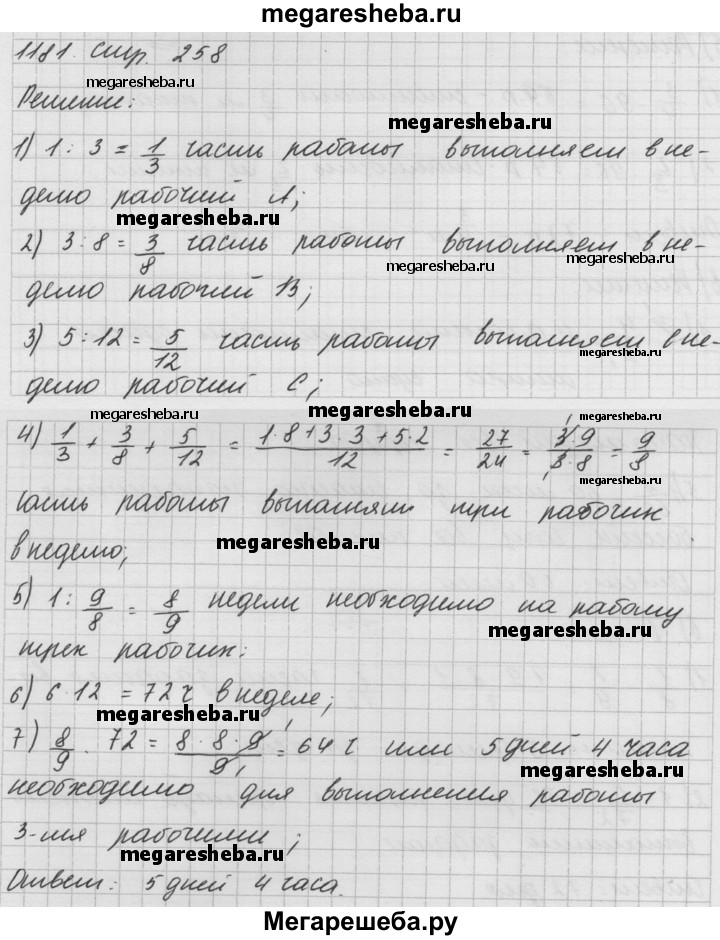 megaresheba.ru
1181. стр. 258
megaresheba.ru
Решение:
megaresheba.ru
1) 1 : 3 = 1/3 часть работы выполняет в не-
делю рабочий А;
megaresheba.ru
2) 3 : 8 = 3/8 часть работы выполняет в не-
megaresheba.ru
megaresheba.ru
делю рабочий В;
3) 5 : 12 = 5/12 часть работы выполняет в не-
megaresheba.ru
делю рабочий С;
megaresheba.ru
megaresheba.ru
megaresheba.ru
4) 1/3 + 3/8 + 5/12 = (1·8+3·3+5·2)/12 = 27/24 = 3·9/3·8 = 9/8
megaresheba.ru
часть работы выполняли три рабочих
в неделю;
megaresheba.ru
5) 1 : 9/8 = 8/9 недели необходимо на работу
megaresheba.ru
трех рабочих:
6) 6·12 = 72 ч в неделе;
megaresheba.ru
7) 8/9 · 72 = 8·8·9/9 = 64 ч или 5 дней 4 часа
megaresheba.ru
необходимо для выполнения работы
3-мя рабочими;
megaresheba.ru
Ответ: 5 дней 4 часа.
Мегарешеба.ру